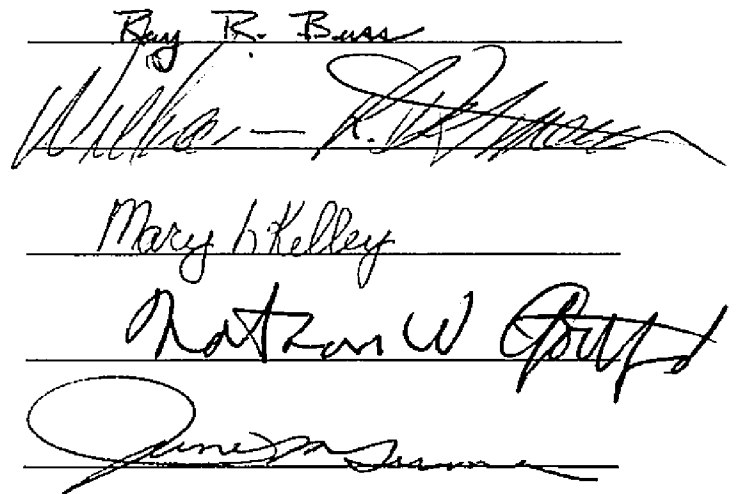 Ray R. Buss
William R.
Mary L Kelley
Nathan W
June M